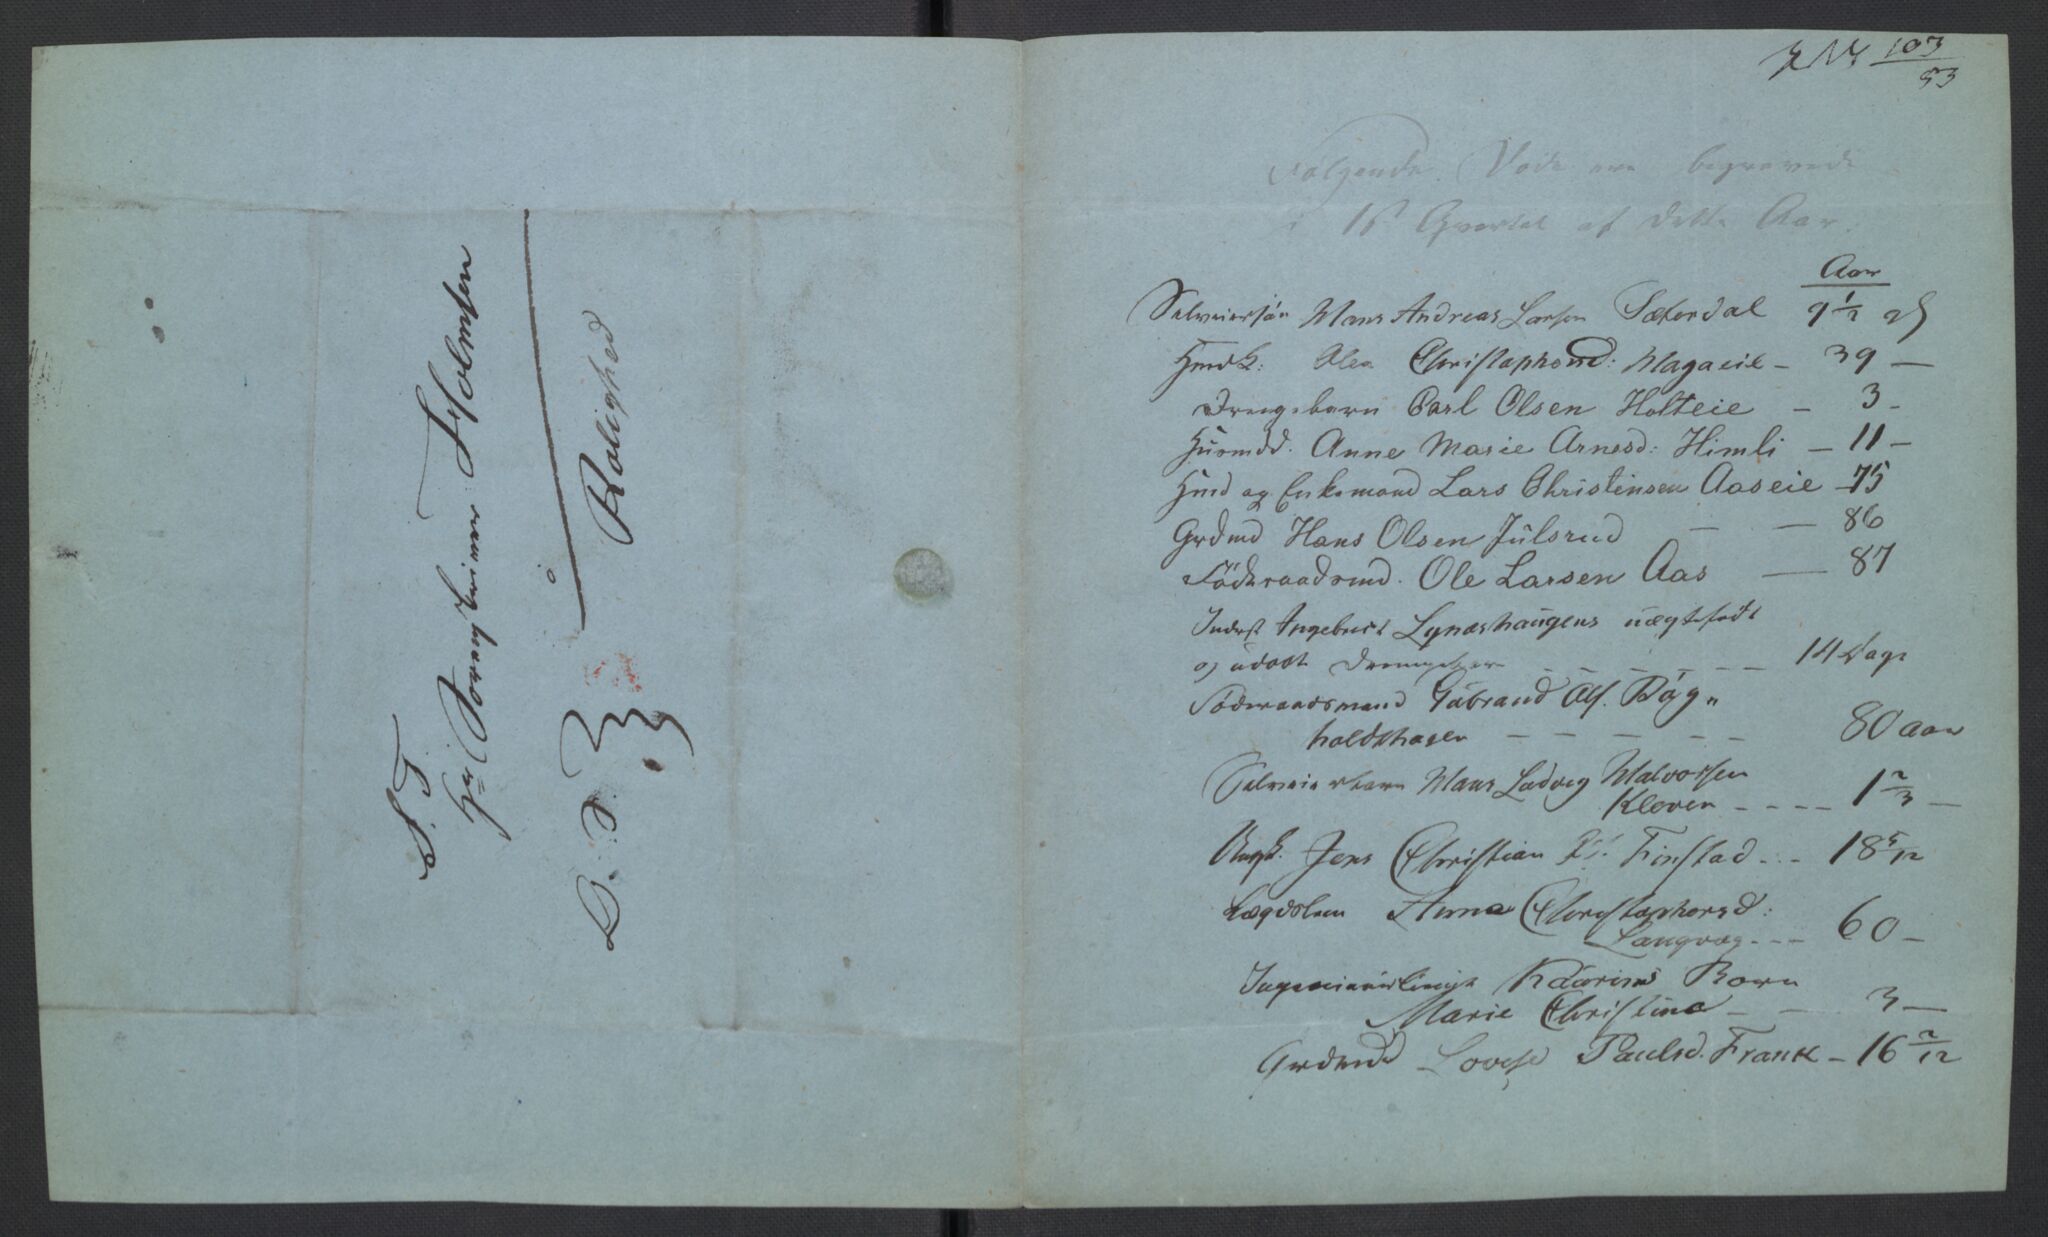 S. T.
Hr Sorenskriver Holmsen
å Rolighed
D. S.
JN 103/53
Følgende Døde ere begravede
i 1st Qvartal af dette Aar.
Aar
Selveiersøn Hans Andreas Larsen Sæterdal 9 1/2
Hmdk: Olea Christophersd: Magaeie - 39 -
Drengebarn Carl Olsen Holteie - 3 -
Anne Marie Arnesd: Himli - 11 -
Hmd og Enkemand Lars Christensen Aaseie - 75
Grdmd Hans Olsen Julsrud - - 86
Föderaadsmd. Ole Larsen Aas - 87
Inderst Ingebrigt Lynæshaugens uægtefødt
og udøbt Drengebarn - - - - - - 14 Dage
Föderaadsmand Gulbrand Bøhn„
holdshagen - - - - - 80 aar
Selveierbarn Hans Ludvig Halvorsen
Kleven - - - - 1 2/3 -
Ungk. Jens Christian Finstad - - - 18 5/12
Lægdslem Anne Christophersd:
Langvæg - - - 60 -
Barn
Marie Christine - - 3 -
Lovise Paulsd. Frank - 16 2/12